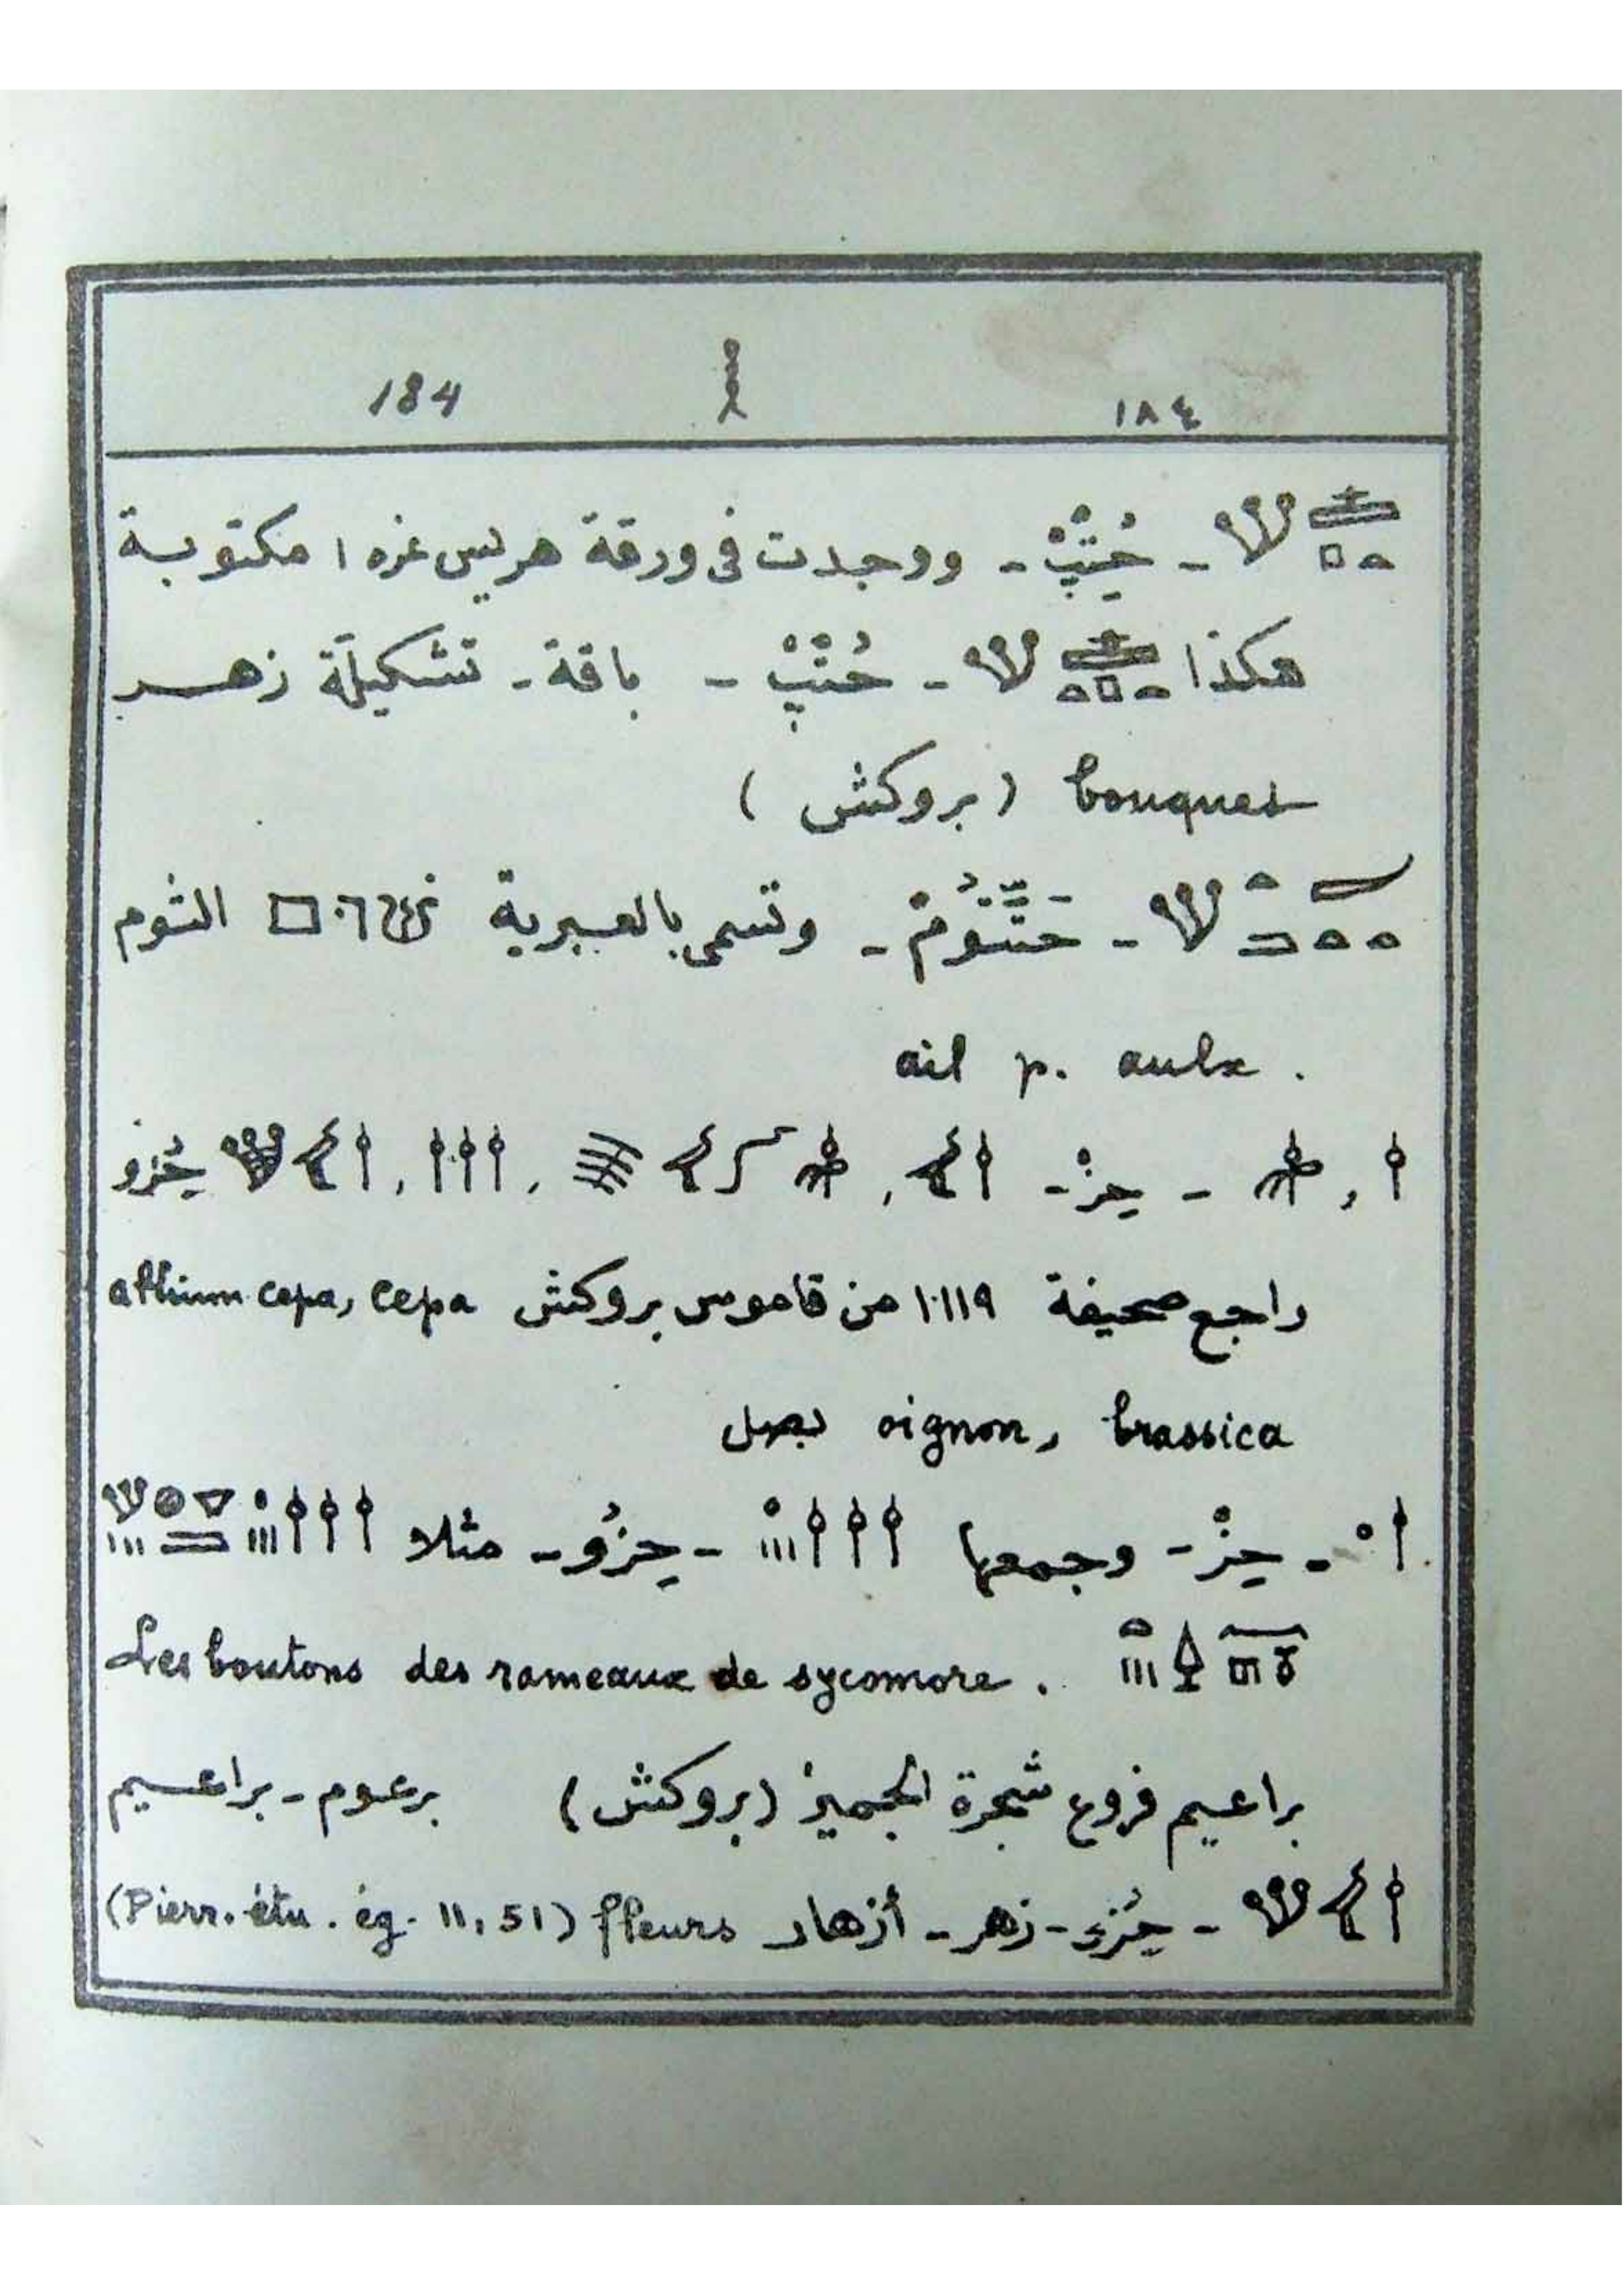 ١٨٤ 𓎛 184
𓊵𓏏𓊪𓆰 - حُتِبْ - ووجدت فى ورقة هريس نمره ١ مكتوبة
هكذا 𓊵𓏏𓊪𓏏𓆰 - حُتْبْ - باقة - تشكيلة زهر
bouquet (بروكش)
- حَتُّومْ - وتسمى بالعبرية الثوم
ail p. aulx .
𓌉 , - حِزْ - , , 𓌉𓌉𓌉 , حُزو
راجع صحيفة ١١١٩ من قاموس بروكش allium cepa, cepa
oignon, brassica بصل
𓌉 - حِزْ - وجمعها 𓌉𓌉𓌉 - حِزُو - مثلا 𓌉𓌉𓌉
Les boutons des rameaux de sycomore .
براعيم فروع شجرة الجميز (بروكش) برعوم - براعيم
- زهر - أزهار fleurs (Pierr. étu. ég. 11, 51)